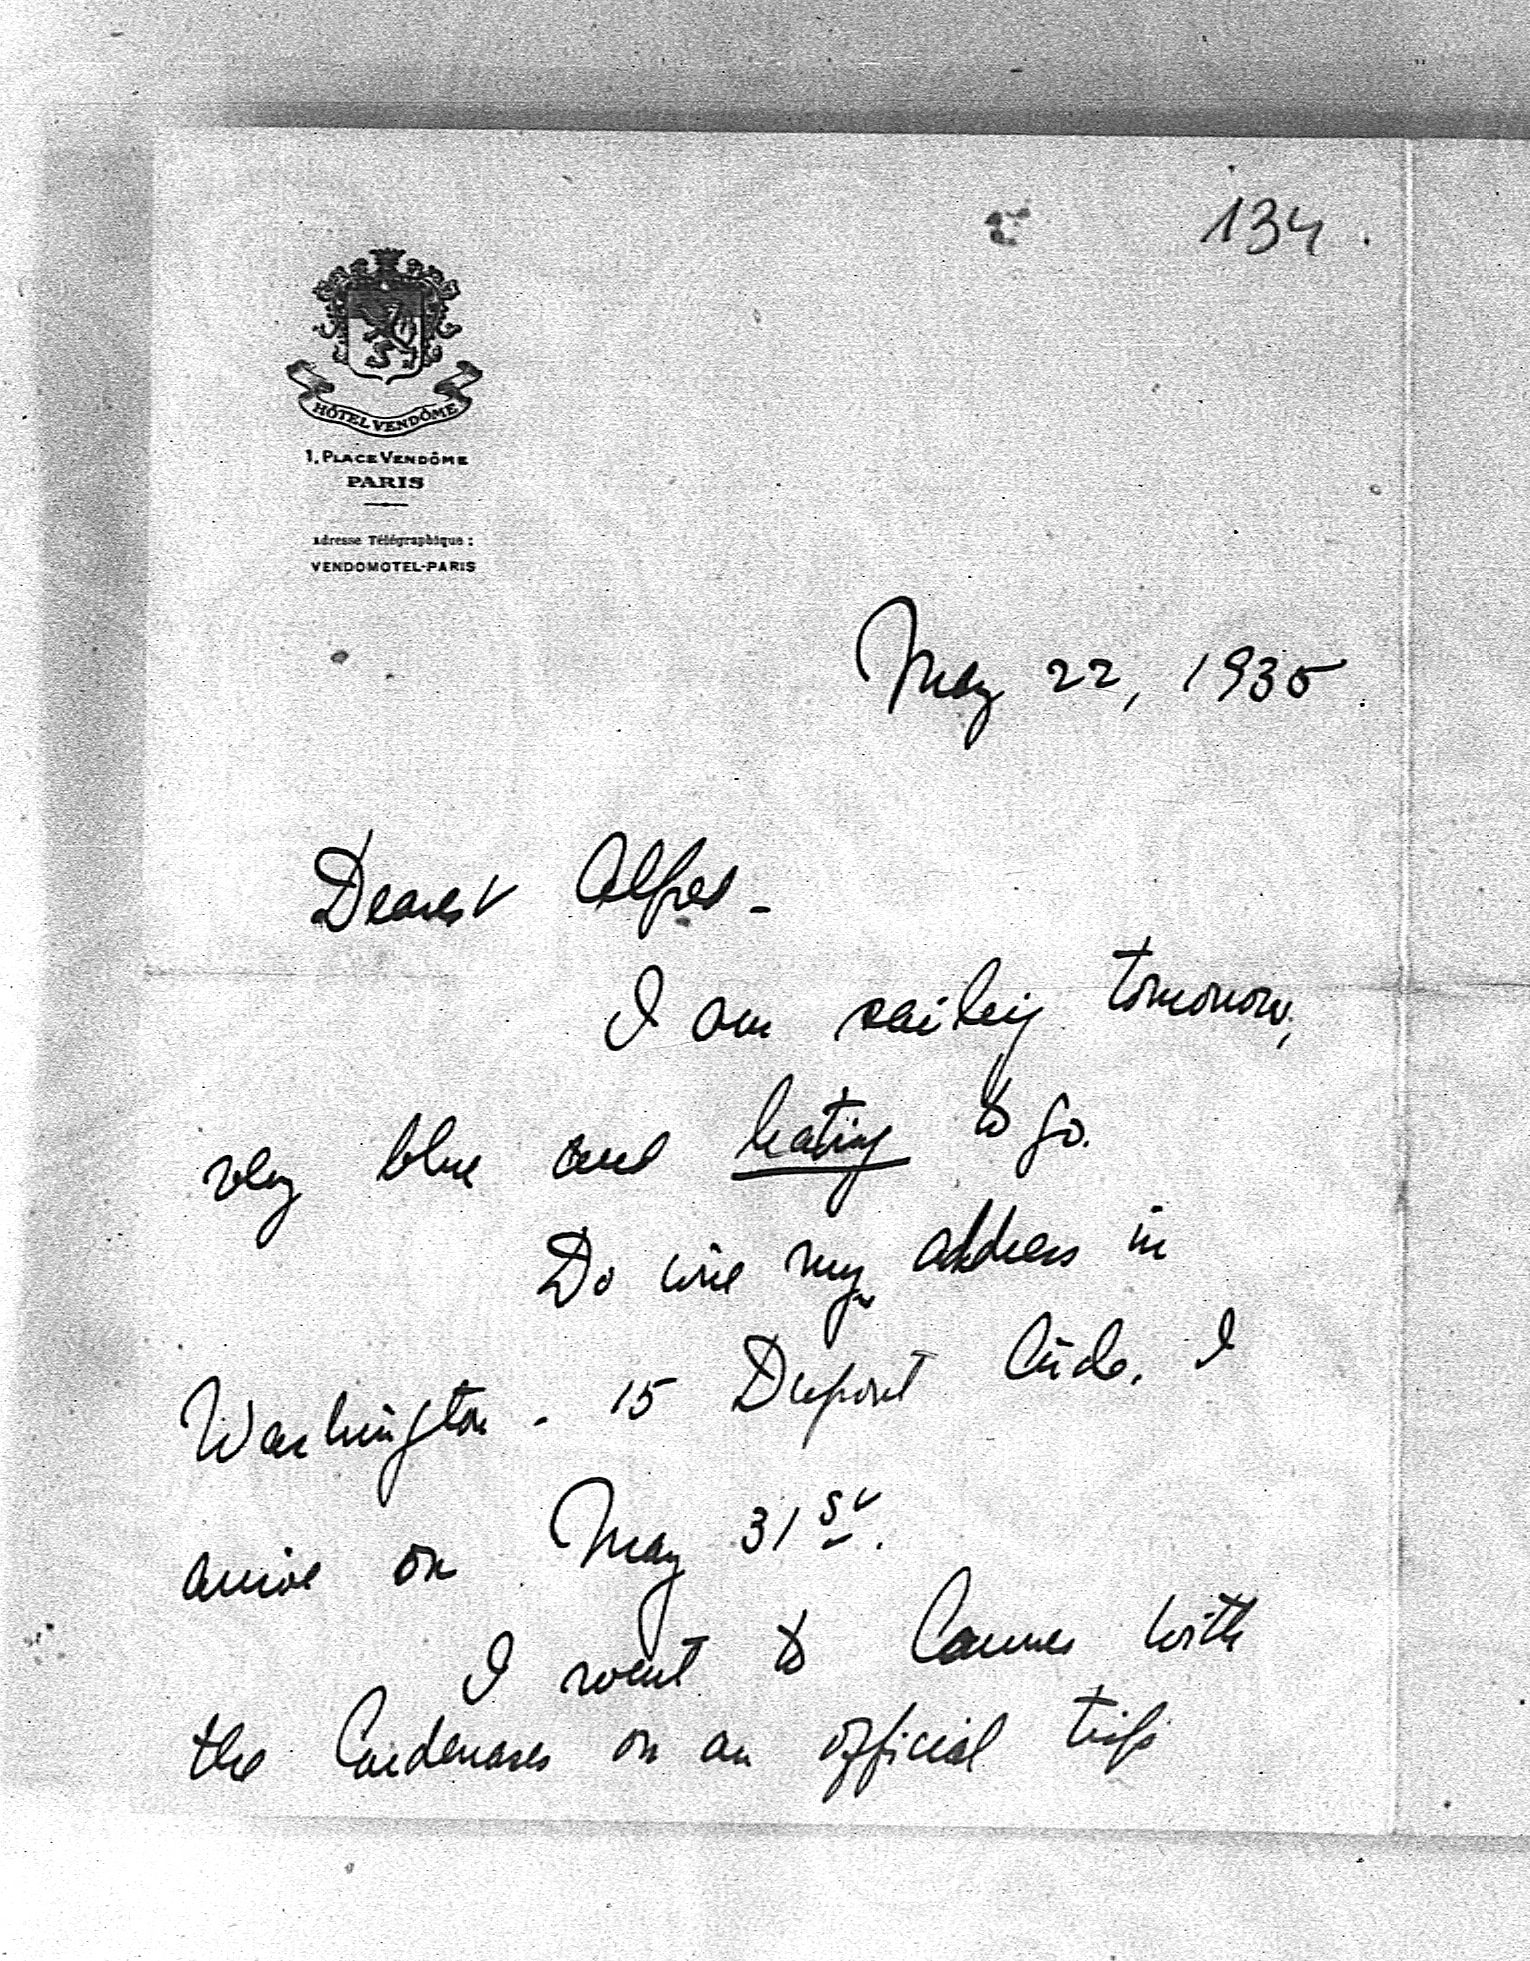 134.
HÔTEL VENDÔME
1, PLACE VENDÔME
PARIS
Adresse Télégraphique :
VENDOMOTEL-PARIS
May 22, 1935.
Dearest Alfred -
I am sailing tomorrow,
very blue and hating to go.
Do wire my address in
Washington - 15 Dupont Circle. I
arrive on May 31st.
I went to Cannes with
the Cardenases on an official trip